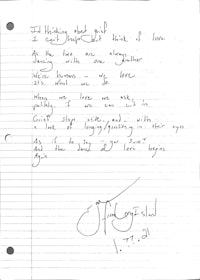 I'd thinking about grief
I can't help but think of love.
As the two are always
dancing with one another
We're humans - we love
It's what we do.
When we love we ask,
politely, if we can cut in
Grief steps aside and - with
a look of longing/questioning in their eyes
As if to say " you sure?
And the dance of love begins
Again
Long Island